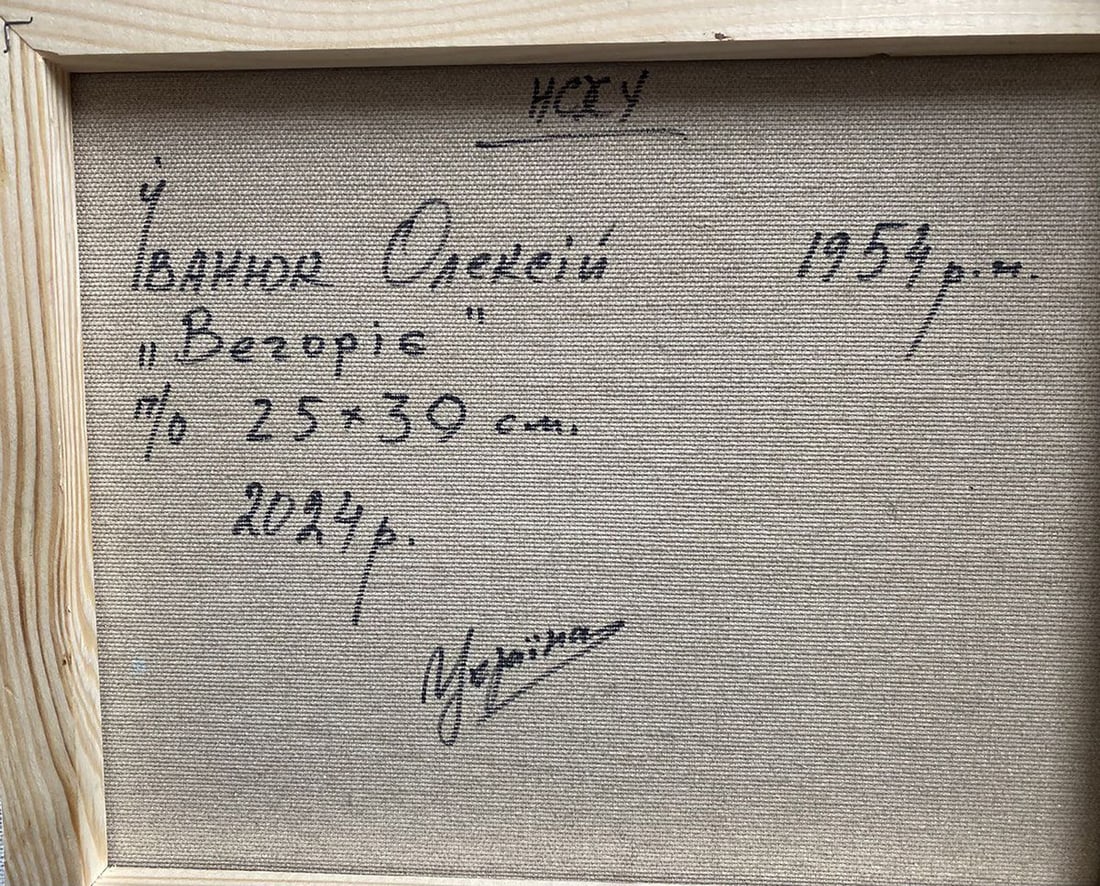 НСХУ
Іванюк Олексій 1954 р.н.
„Вечоріє"
п/о 25×30 см.
2024 р.
Україна